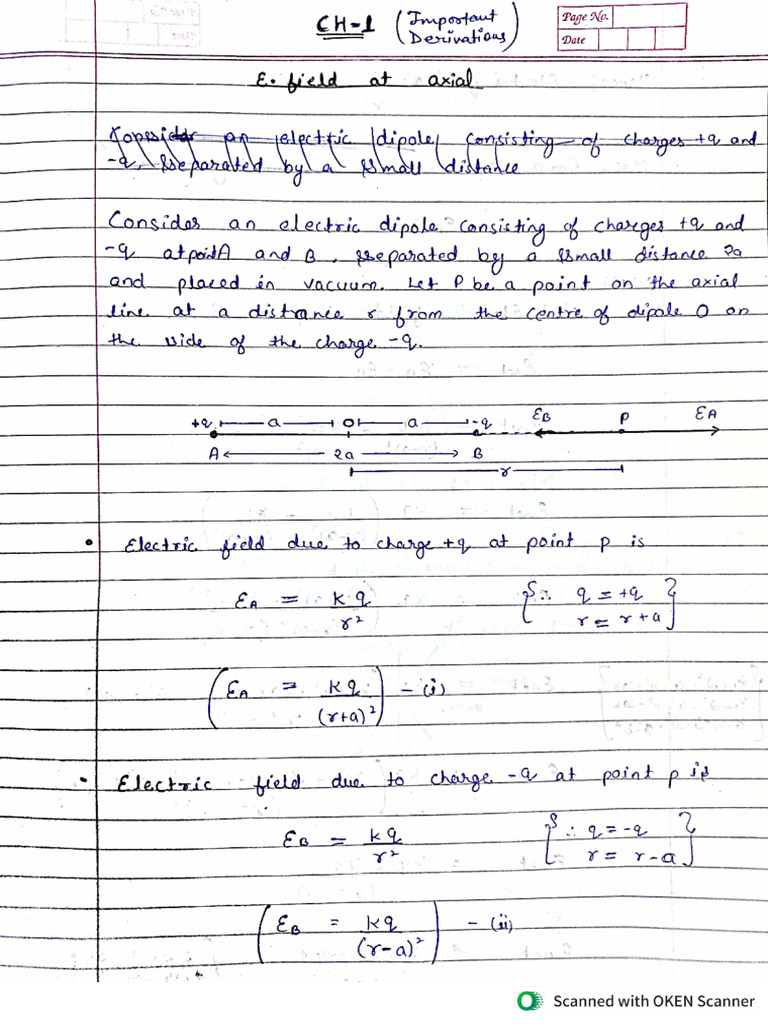 CH-1 (Important Derivations)
Page No.
Date
E. field at axial
Consider an electric dipole consisting of charges +q and
-q, sseparated by a ssmall distance
Consider an electric dipole consisting of charges +q and
-q at point A and B, sseparated by a ssmall distance 2a
and placed in vacuum. Let P be a point on the axial
line at a distrance r from the centre of dipole O on
the side of the charge -q.
+q a O a -q EB P EA
A 2a B
r
• Electric field due to charge +q at point p is
EA = kq/r² {∴ q = +q
r = r+a}
(EA = kq/(r+a)²) - (i)
• Electric field due to charge -q at point p is
EB = kq/r² {∴ q = -q
r = r-a}
(EB = kq/(r-a)²) - (ii)
Scanned with OKEN Scanner